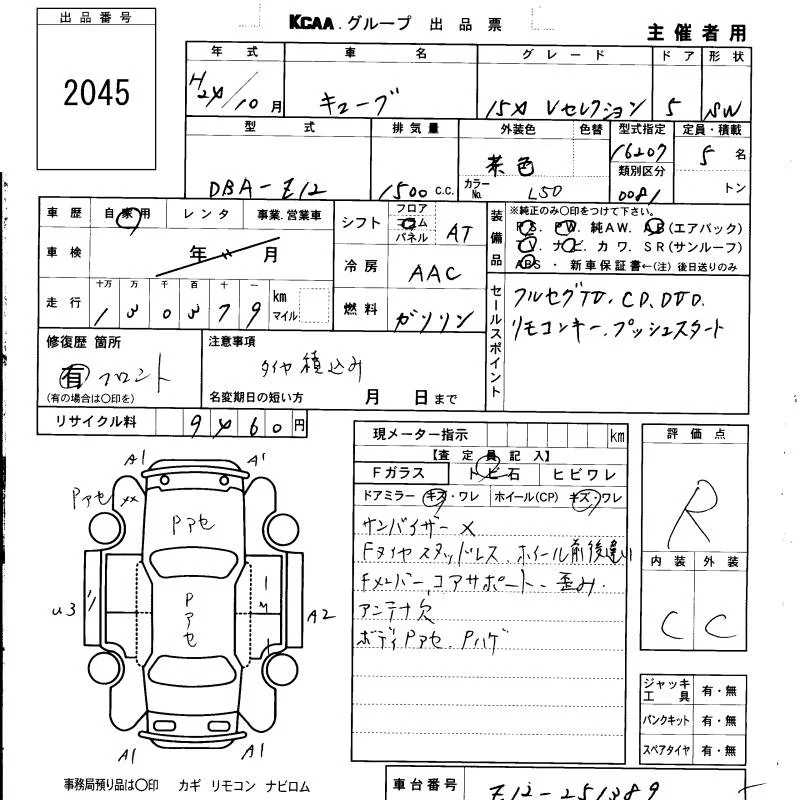 出品番号
2045
KCAA.グループ 出品票
主催者用
年式 車名 グレード ドア 形状
H24/10月 キューブ 15X Vセレクション 5 SW
型式 排気量 外装色 色替 型式指定 定員・積載
DBA-Z12 1500 c.c. 茶色 16207 5名
カラーNo. L50 類別区分 0081 トン
車歴 自家用 レンタ 事業.営業車
車検 年 月
走行 十万 万 千 百 十 一 km マイル
1 3 0 3 7 9
シフト フロア コラム パネル AT
冷房 AAC
燃料 ガソリン
装備品
※純正のみ○印をつけて下さい。
P.S. P.W. 純AW. A.B(エアバック)
T.V. ナビ. カワ. SR(サンルーフ)
ABS ・ 新車保証書←(注) 後日送りのみ
セールスポイント
フルセグTV. CD.DVD.
リモコンキー.プッシュスタート
修復歴 箇所
有 フロント
(有の場合は○印を)
注意事項
タイヤ積込み
名変期日の短い方 月 日まで
リサイクル料 9460円
現メーター指示 km
【査定員記入】
Fガラス トビ石 ヒビワレ
ドアミラー キズ・ワレ ホイール(CP) キズ・ワレ
サンバイザー X
Fタイヤスタッドレス.ホイール前後違い
Fメンバー.コアサポート.歪み.
アンテナ欠
ボディPアセ.Pハゲ
評価点
R
内装 外装
C C
ジャッキ工具 有・無
パンクキット 有・無
スペアタイヤ 有・無
A1 A1
Pアセ XX
Pアセ
Pアセ
U3
A2
A1 A1
事務局預り品は○印 カギ リモコン ナビロム
車台番号 Z12-251389